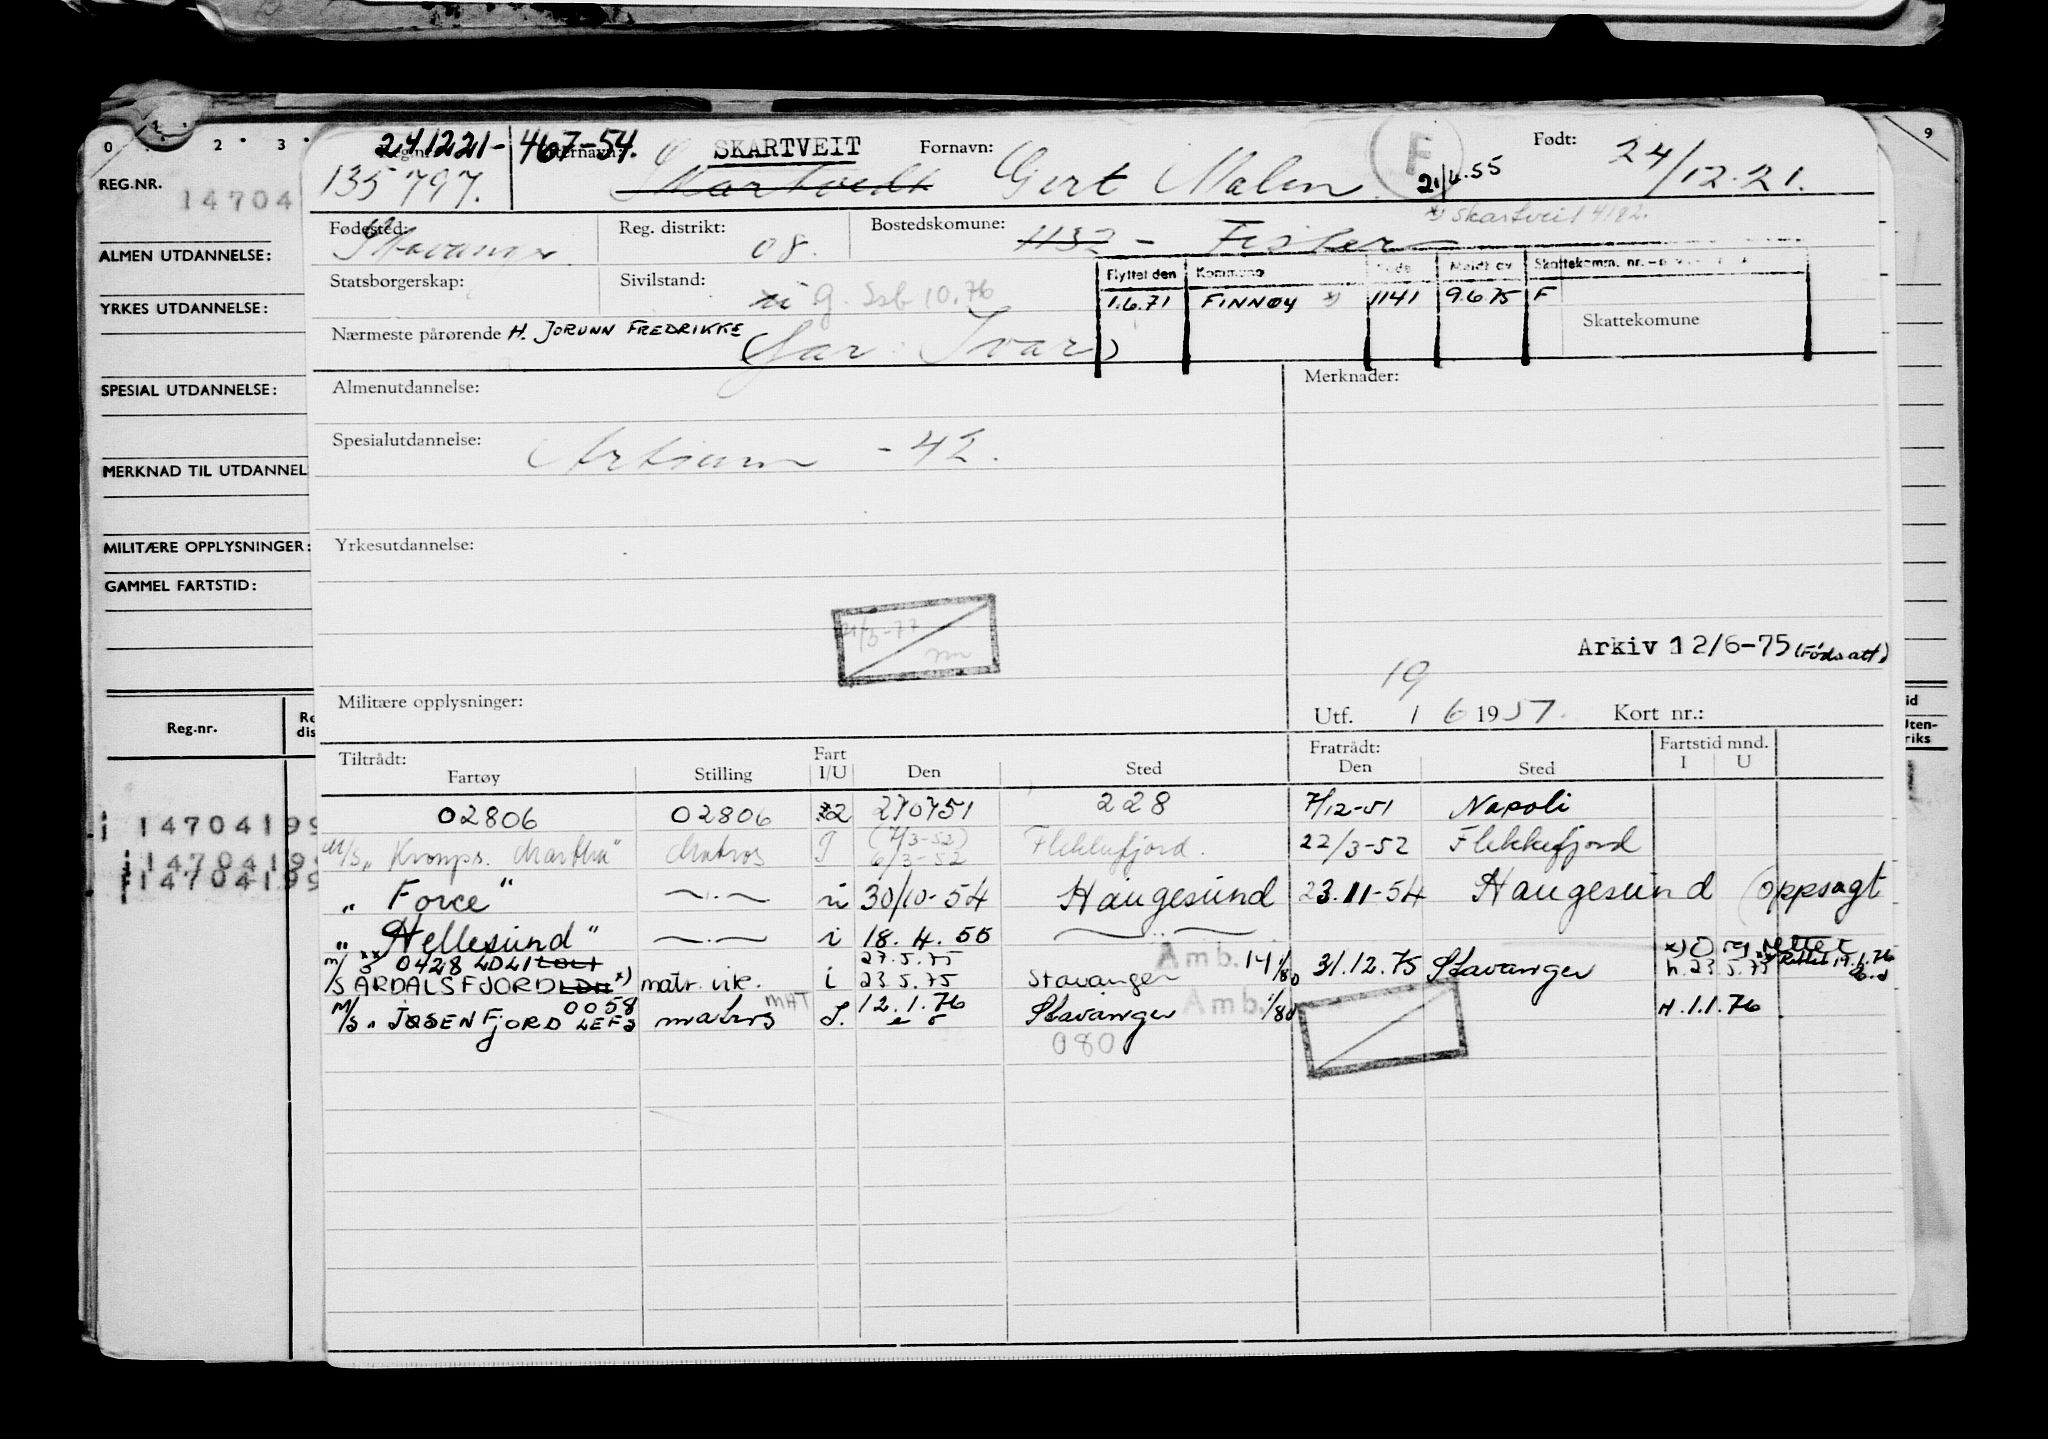 0 2 3 9
REG.NR. 14704
ALMEN UTDANNELSE:
YRKES UTDANNELSE:
SPESIAL UTDANNELSE:
MERKNAD TIL UTDANNEL
MILITÆRE OPPLYSNINGER:
GAMMEL FARTSTID:
Reg.nr.
14704199
14704199
14704199
241221- 467-54. SKARTVEIT Fornavn: F Født:
135797. Skartvedt Gert Malon 21/4.55 24/12.21.
x) Skartveit 4182.
Fødested: Stavanger Reg. distrikt: 08. Bostedskomune: 1132 - Fister
Flyttet den Kommune Kode Meldt av Skattekomm. nr.
Statsborgerskap: Sivilstand: ui g. Ssb 10.76 1.6.71 FINNØY x) 1141 9.6.75 F
Nærmeste pårørende H. JORUNN FREDRIKKE (Far: Ivar) Skattekomune
Almenutdannelse: Merknader:
Spesialutdannelse: Artium - 42.
Yrkesutdannelse:
21/3-77
Arkiv 12/6-75 (Føds att)
19
Militære opplysninger: Utf. 1 6 1957. Kort nr.:
Tiltrådt: Fart Fratrådt: Fartstid mnd.
Fartøy Stilling I/U Den Sted Den Sted I U
02806 02806 2 270751 228 7/12-51 Napoli
M/S „Kronprs. Märtha" Matros I (7/3-52) 6/3-52 Flekkefjord. 22/3-52 Flekkefjord
„ Force" —.— ui 30/10-54 Haugesund 23.11-54 Haugesund (oppsagt
„ Hellesund" —.— i 18.4.55 —..—
0428 LDLI 27.5.75
M/S ARDALSFJORD x) matr. vik. i 23.5.75 Stavanger Amb. 14 1/80 31.12.75 Stavanger h. 23.5.75 rettet 19.1.76
0058 MAT
M/S „JØSENFJORD LEFJ matros I. 12.1.76 Stavanger Amb. 1/80 H.1.1.76
080